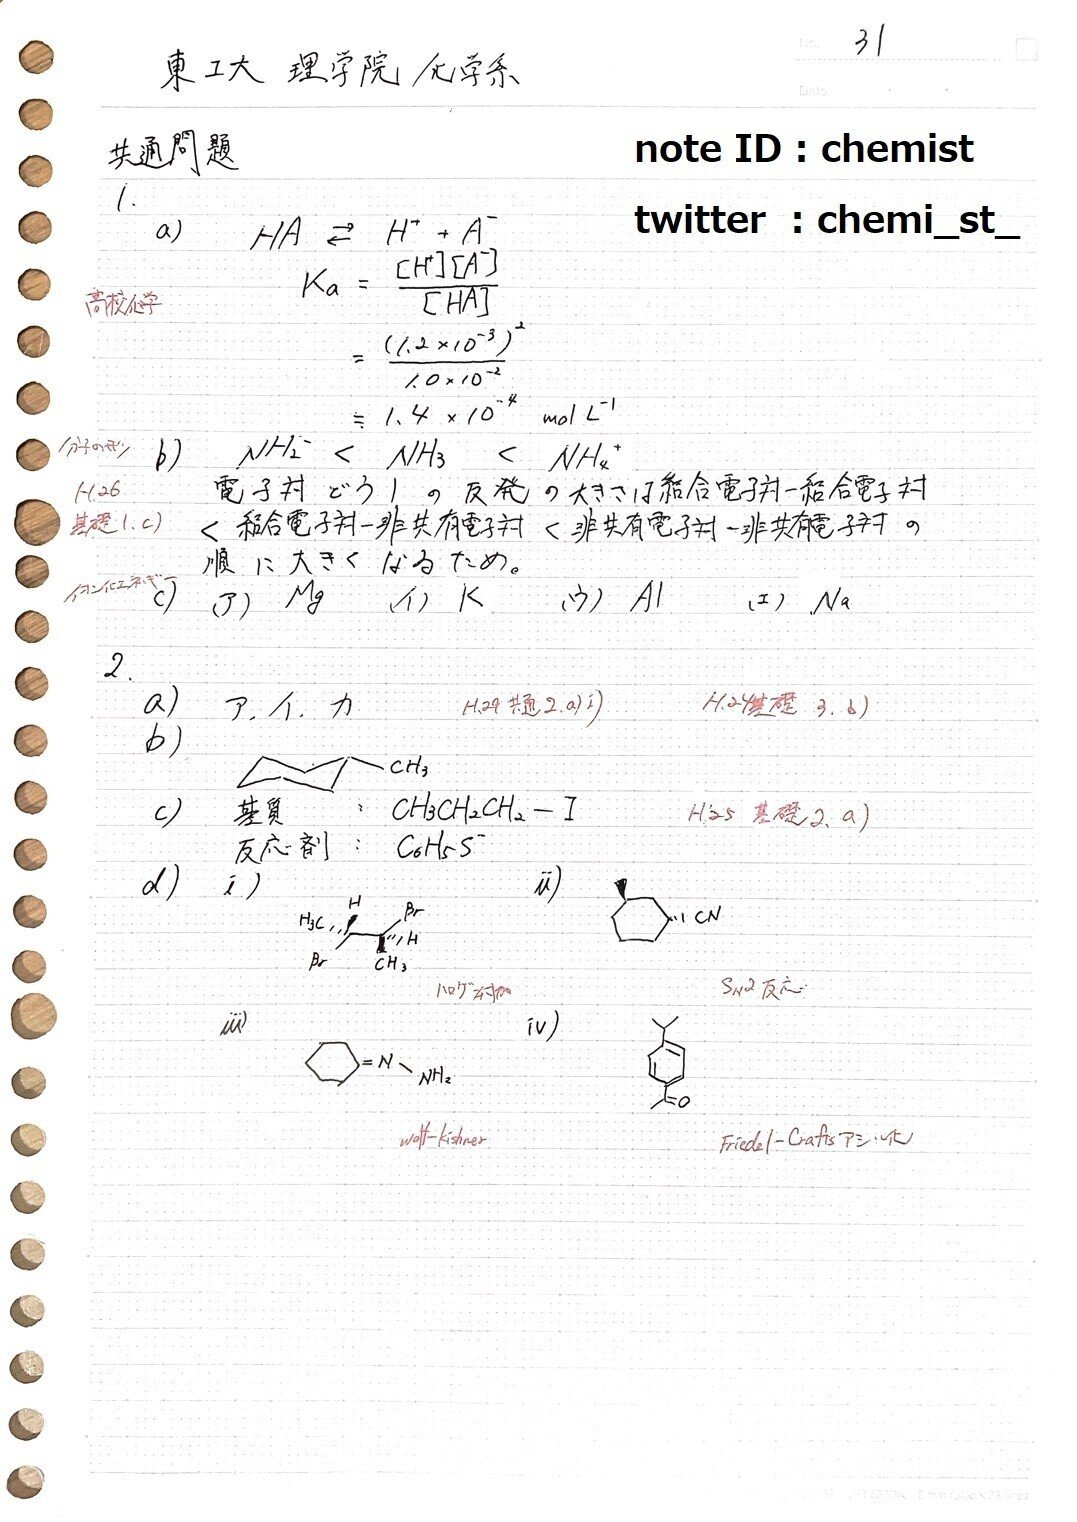 No. 31
Date
東工大 理学院 化学系
note ID：chemist
twitter ：chemi_st_
共通問題
1.
a) HA ⇄ H⁺ + A⁻
Ka = [H⁺][A⁻] / [HA]
高校化学
= (1.2×10⁻³)² / 1.0×10⁻²
≒ 1.4 ×10⁻⁴ mol L⁻¹
b) NH₂⁻ < NH₃ < NH₄⁺
H.26
基礎1.c)
電子対どうしの反発の大きさは結合電子対ー結合電子対
< 結合電子対ー非共有電子対 < 非共有電子対ー非共有電子対の
順に大きくなるため。
イオン化エネルギー
c) (ア) Mg (イ) K (ウ) Al (エ) Na
2.
a) ア. イ. カ H.29 共通2.a)i) H.24基礎 3.b)
b)
CH₃
c) 基質 : CH₃CH₂CH₂－I H.25 基礎2.a)
反応剤 : C₆H₅S⁻
d) i) ii)
H
H₃C Br
H
Br CH₃
CN
ハロゲン付加 SN2反応
iii) iv)
=N
NH₂
=O
Wolff-Kishner Friedel-Craftsアシル化